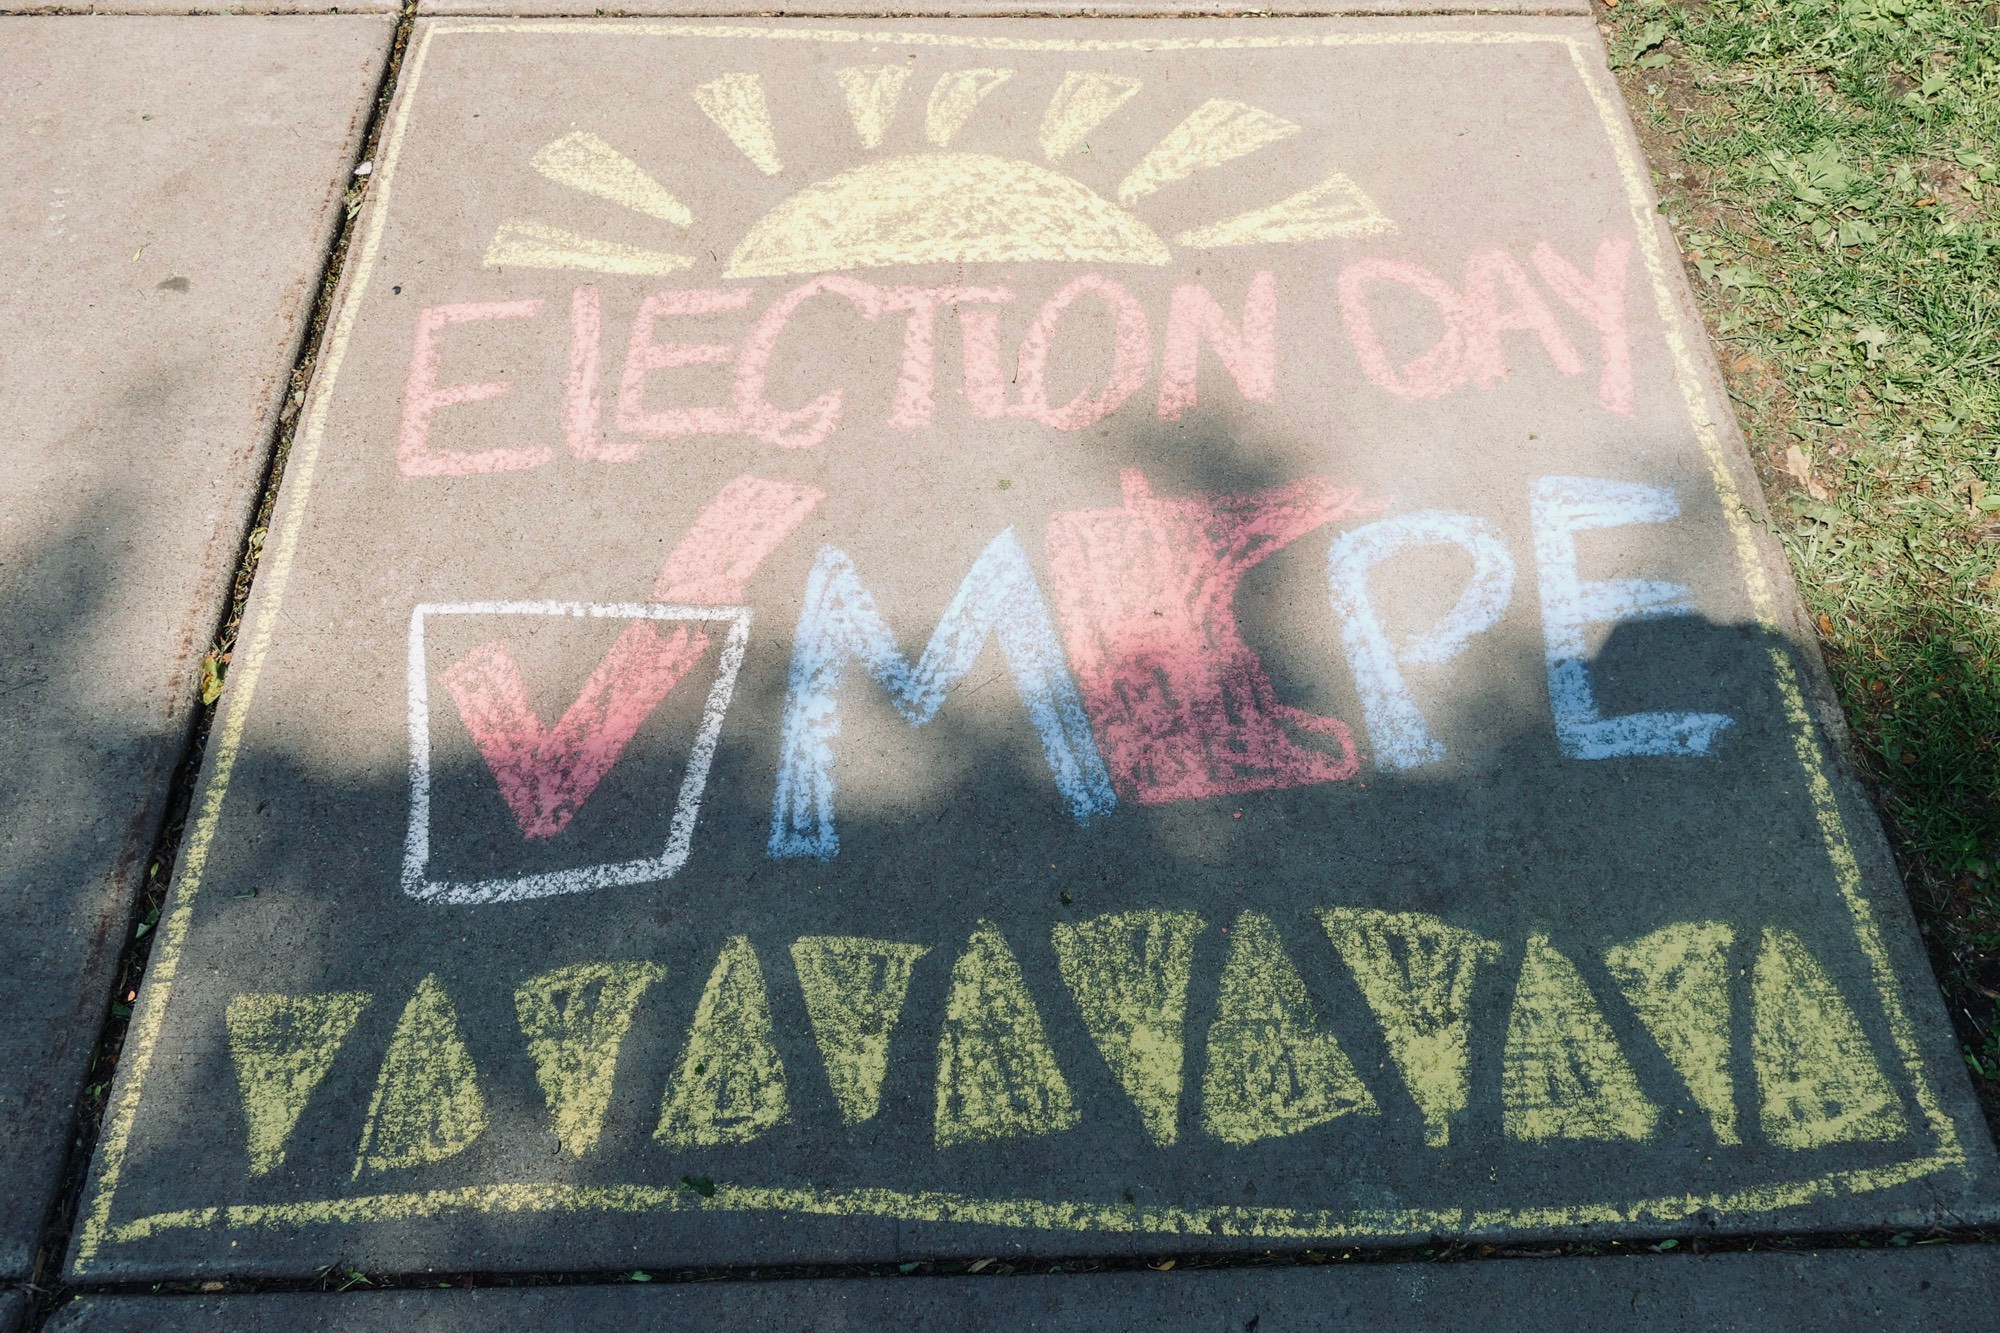 ELECTION DAY
M PE